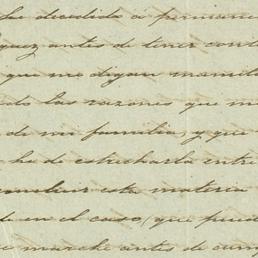 he decidido á permanec
quez antes de tener conte
que me digan mamita
do las razones que me
de mi familia, y que
he de estrecharla entre
esta materia
en el caso, que pued
marche antes de cump